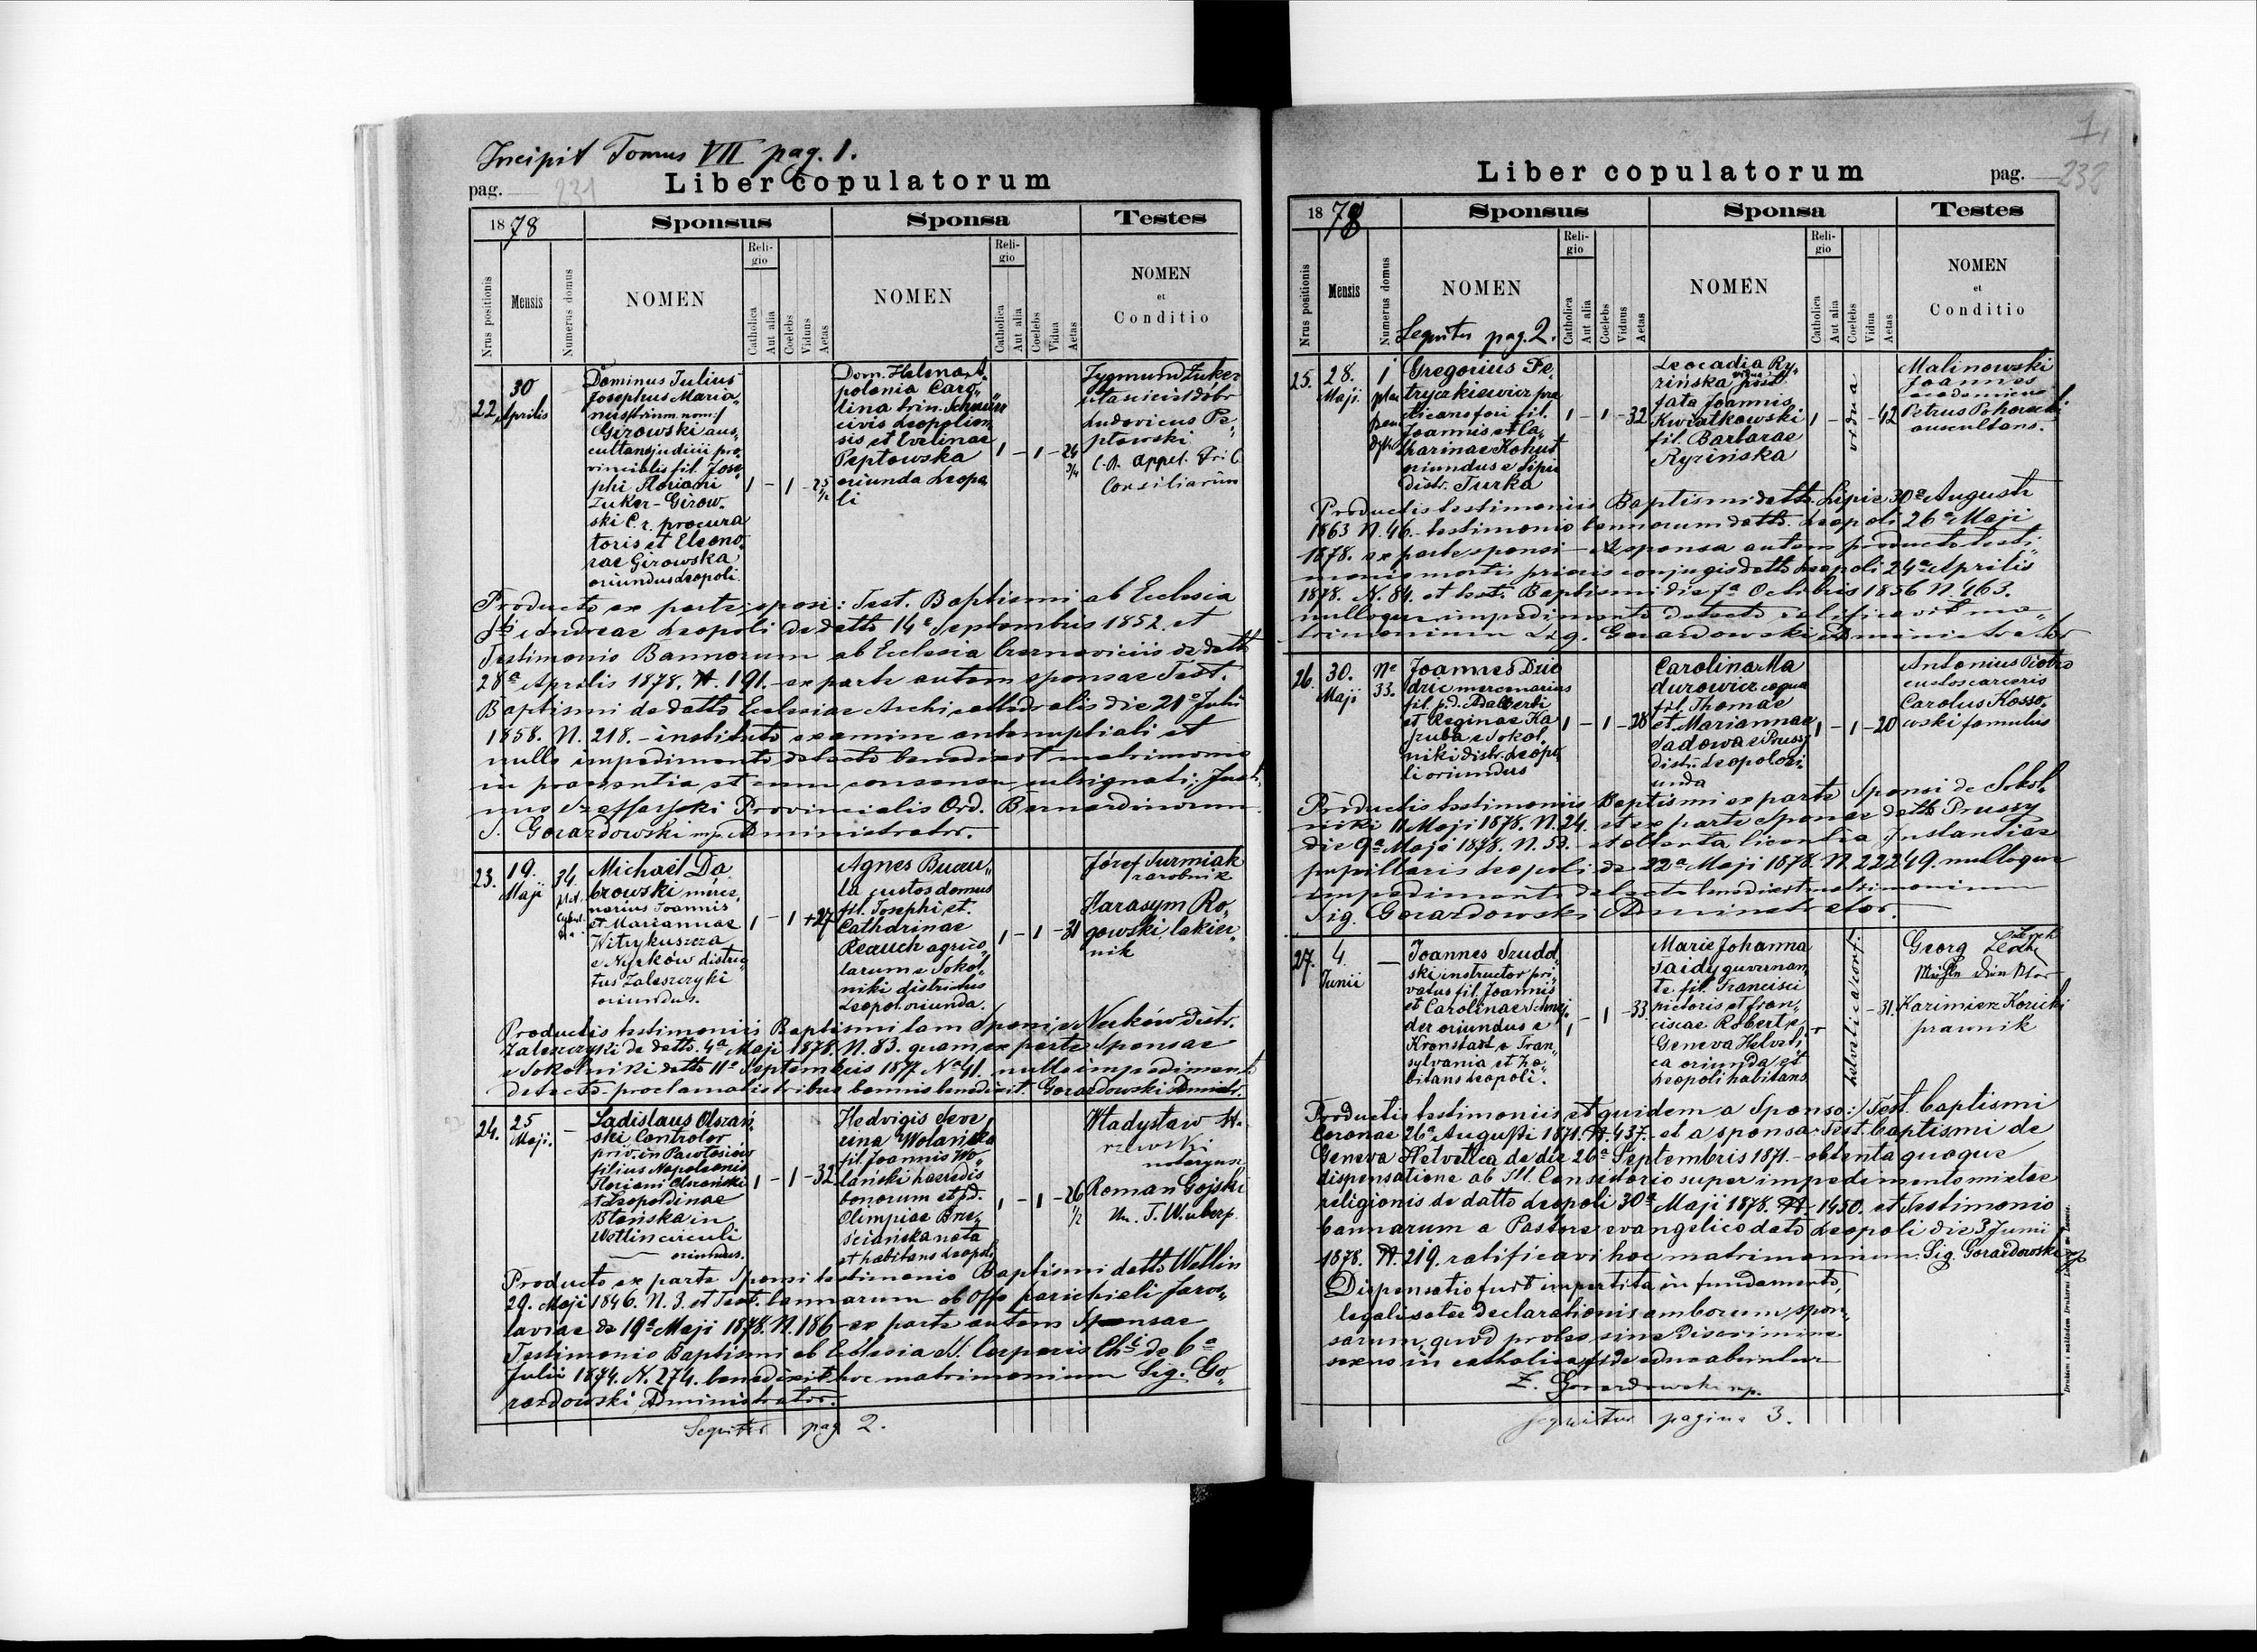 Incipit Tomus VII pag. 1.
pag. 231
Liber copulatorum
1878
Sponsus
Sponsa
Testes
Nrus positionis
Mensis
Numerus domus
NOMEN
Religio
Catholica
Aut alia
Coelebs
Viduus
Aetas
NOMEN
Religio
Catholica
Aut alia
Coelebs
Vidua
Aetas
NOMEN
et
Conditio
22
30
Aprilis
Dominus Julius
Josephus Maria„
nus (trium nom:)
Girowski aus„
cultans judicii pro„
vincialis fil. Jose„
phi Floriani
Zuker-Girow„
ski C. r. procura
toris et Eleono„
rae Girowska
oriundus Leopoli.
1 - 1 - 25 1/2
Dom. Helena A„
polonia Caro„
lina trin.
civis Leopolien„
sis et Evelinae
Peptowska
oriunda Leopo
li
1 - 1 - 24 3/4
Zygmund Zuker
właściciel dóbr
Ludovicus Pe„
ptowski
C. R. appel. Tri C
Consiliarius
Producto ex parte sposi: Test. Baptismi ab Ecclesia
Sti Andreae Leopoli de datto 14a Septembris 1852. et
Testimonio Bannorum ab Ecclesia Czernoviciis de datto
28a Aprilis 1878. N. 191. - ex parte autem sponsae Test.
Baptismi de datto Ecclesiae Archicathedralis die 21a Julii
1858. N. 218. - instituto examine antenuptiali et
nullo impedimento detecto benedixit matrimonio
in praesentia et cum consensu subsignati: Justi„
nus Szaffarski Provincialis Ord. Bernardinorum
S. Gorazdowski mp. Administrator.
23.
19.
Maji
34.
Michael Da„
browski merce„
narius Joannis
et Mariannae
Witrykuszcza
e Nyrków distric„
tus Zaleszczyki
oriundus.
1 - 1 + 27
Agnes Buczu„
la custos domus
fil. Josephi et
Catharinae
Reauch agrico„
larum e Sokol„
niki districtus
Leopol. oriunda.
1 - 1 - 31
Józef Surmiak
zarobnik
Harasym Ro„
gowski lakier„
nik
Productis testimoniis Baptismi tam Sponsi e Nerków distr.
Zaleszczyki de datto. 4a Maji 1878. N. 83. quam ex parte Sponsae
e Sokolniki datto 11a Septembris 1877 No 41. nullo impedimento
detecto proclamatis tribus bannis benedixit. Gorazdowski Administr.
24.
25
Maji.
-
Ladislaus Olszań„
ski Controlor
priv. in Pawłosiow
filius Napoleonis
Floriani Olszański
et Leopoldinae
Błońska in
Wettlin circuli
oriundus.
1 - 1 - 32
Hedvigis Seve„
rina Wolańska
fil. Joannis Wo„
lański haeredis
bonorum et p.d.
Olimpiae Brze„
sciańska nata
et habitans Leopoli
1 - 1 - 26 1/2
Władysław
notaryusz
Roman Gojski
Producto ex parte Sponsi testimonio Baptismi datto Wetlin
29. Maji 1846. N. 3. et Test. bannorum ab Offo parichiali Jaros„
laviae de 19a Maji 1878. N. 186 - ex parte autem Sponsae
Testimonio Baptismi ab Ecclesia SS. Corporis Chti de 6a
Julii 1874. N. 274. benedixit hoc matrimonium Sig. Go„
razdowski, Administrator.
Sequitur pag 2.
1,
Liber copulatorum
pag. 232
1878
Sponsus
Sponsa
Testes
Nrus positionis
Mensis
Numerus domus
NOMEN
Sequitur pag. 2.
Religio
Catholica
Aut alia
Coelebs
Viduus
Aetas
NOMEN
Religio
Catholica
Aut alia
Coelebs
Vidua
Aetas
NOMEN
et
Conditio
25.
28.
Maji
1
Gregorius Pe„
tryczkiewicz pra
cticans fori fil.
Joannis et Ca„
tharinae Kohut
oriundus e Lipie
distr. Turka
1 - 1 - 32
Leocadia Ry„
zińska vidua post
fata Joannis
Kwiatkowski
fil. Barbarae
Ryzińska
1 - vidua - 42
Malinowski
Joannes
academicus
Petrus Pohorecki
auscultans.
Productis testimoniis Baptismi datto. Lipie 30a Augusti
1863 N. 46. - testimonio bannorum datto. Leopoli 26a Maji
1878. ex parte sponsi - A sponsa autem producto testi„
monio mortis prioris conjugis datto Leopoli 24a Aprilis
1878. N. 84. et testi Baptismi die 7a Octobris 1836 N. 463.
nulloque impedimento detecto ratificavit ma„
trimonium Sig. Gorazdowski Administrator
26.
30.
Maji
No
33.
Joannes Dzie
dzic mercenarius
fil. p.d. Adalberti
et Reginae Ka
szuba e Sokol„
niki distr. Leopo„
li oriundus
1 - 1 - 28
Carolina Ma
durowicz aeque
fil. Thomae
et Mariannae
Sadowa e Prussy
distr. Leopol ori„
unda
1 - 1 - 20
Antonius Piotro
custos carceris
Carolus Kosso„
wski famulus
Productis testimoniis Baptismi ex parte Sponsi de Sokol„
niki 11 Maji 1878. N. 24. et ex parte Sponsae datto Prussy
die 9a Maji 1878. N. 53. et obtenta licentia Instantiae
pupillaris Leopoli de 22a Maji 1878. N. 22249. nulloque
impedimento detecto benedixit matrimonium
Sig. Gorazdowski Administrator.
27.
4.
Junii
-
Joannes Szudol„
ski instructor pri„
vatus fil. Joannis
et Carolinae Schnei„
der oriundus e
Kronstadt e Tran„
sylvania et ha„
bitans Leopoli.
1 - 1 - 33
Marie Johanna
Taidy guvernan„
te. fil. Francisci
pictoris et Fran„
ciscae Robert e
Geneva Helveti„
ca oriunda et
Leopoli habitans
helvetica conf.
- 31
Georg Lerch
Kazimierz Kozicki
prawnik
Productis testimoniis et quidem a Sponso: Test. baptismi
Coronae 26a Augusti 1871. N. 437. - et a sponsa - Test. baptismi de
Geneva Helvetica de die 26a Septembris 1871. - obtenta quoque
dispensatione ab Ill. Consistorio super impedimento mixtae
religionis de datto Leopoli 30a Maji 1878. N. 1450. et Testimonio
bannorum a Pastore evangelico dato Leopoli die 3 Junii
1878. N. 219. ratificavi hoc matrimonium. Sig. Gorazdowski
Dispensatio fuit impertita in fundamento,
legalisatae declarationis amborum, spon„
sorum, quod proles sine discrimine
sexus in catholica fide educabuntur
Z. Gorazdowski mp.
Sequitur pagina 3.